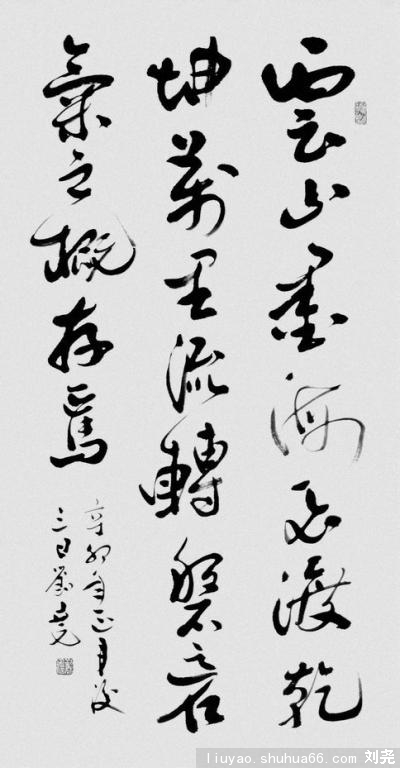 雲山墨海渡乾
坤萬里流轉磐
氣之概存焉
辛卯年正月後
三日劉堯
liuyao.shuhua66.com 刘尧